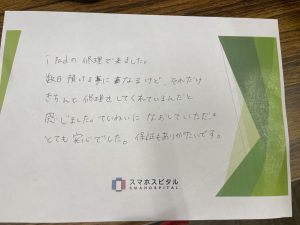 iPadの修理で来ました。
数日預ける事になるけど、それだけ
きちんと修理をしてくれているんだと
感じました。ていねいになおしていただき
とても安心でした。保証もありがたいです。
スマホスピタル
SMAHOSPITAL